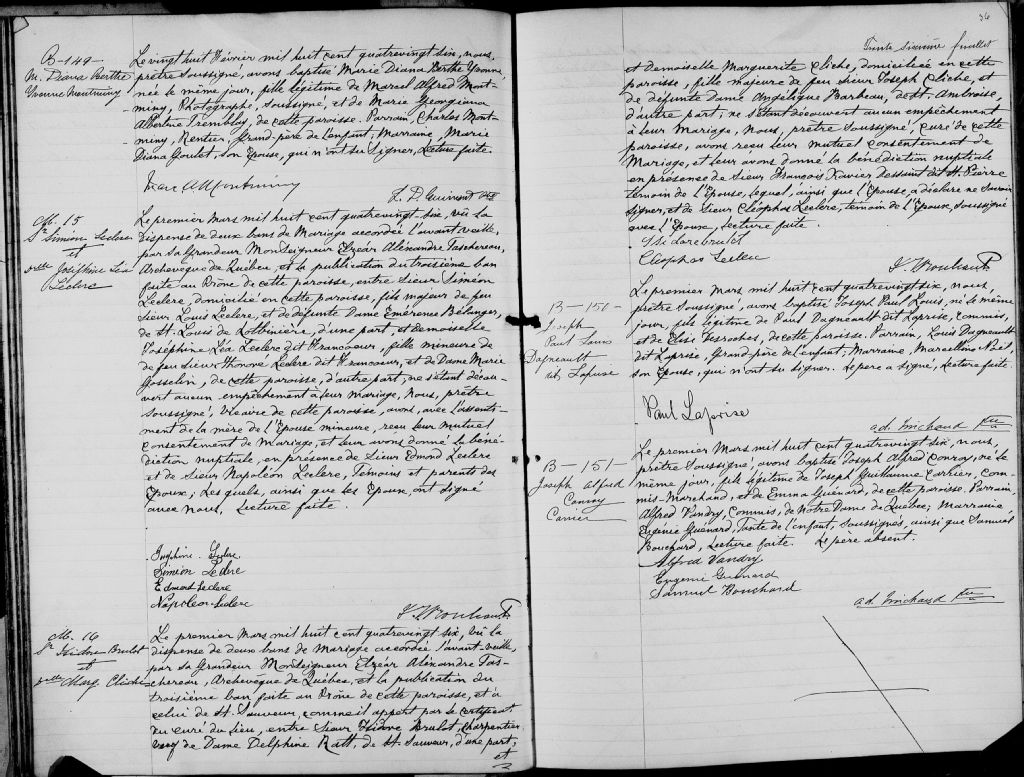 B-149-
M. Diana Berthe
Yvonne Montminy
Le vingt huit Février mil huit cent quatrevingt six, nous,
prêtre soussigné, avons baptisé Marie Diana Berthe Yvonne,
née le même jour, fille légitime de Marcel Alfred Mont-
miny, Photographe, soussigné, et de Marie Georgiana
Albertine Tremblay, de cette paroisse. Parrain, Charles Mont-
miny, Rentier, Grand-père de l'enfant; Marraine, Marie
Diana Goulet, son Épouse, qui n'ont su signer, Lecture faite.
Marc A Montminy
L. P. Guimont
M. 15
Sr Siméon Leclerc
et
Delle Joséphine Léa
Leclerc
Le premier Mars mil huit cent quatrevingt six, vû la
dispense de deux bans de Mariage accordée l'avant-veille,
par sa Grandeur Monseigneur Elzéar Alexandre Taschereau,
Archevêque de Québec, et la publication du troisième ban
faite au Prône de cette paroisse, entre Sieur Siméon
Leclerc, domicilié en cette paroisse, fils majeur de feu
Sieur Louis Leclerc, et de défunte Dame Emérence Bélanger,
de St. Louis de Lotbinière, d'une part, et demoiselle
Joséphine Léa Leclerc dit Francoeur, fille mineure de
feu Sieur Honoré Leclerc dit Francoeur, et de Dame Marie
Gosselin, de cette paroisse, d'autre part; ne s'étant décou-
vert aucun empêchement à leur mariage, nous, prêtre
soussigné, vicaire de cette paroisse, avons, avec l'assenti-
ment de la mère de l'Épouse mineure, reçu leur mutuel
consentement de Mariage, et leur avons donné la béné-
diction nuptiale, en présence de Sieur Edmond Leclerc
et de Sieur Napoléon Leclerc, Témoins et parents des
Époux; Lesquels, ainsi que les Époux, ont signé
avec nous, Lecture faite.
Josephine Leclerc
Siméon Leclerc
Edmond Leclerc
Napoléon Leclerc
M. 16
Sr Isidore Brulot
et
Delle Marg. Cliche
Le premier Mars mil huit cent quatrevingt six, vû la
dispense de deux bans de Mariage accordée l'avant-veille,
par sa Grandeur Monseigneur Elzéar Alexandre Tas-
chereau, Archevêque de Québec, et la publication du
troisième ban faite au Prône de cette paroisse, et à
celui de St. Sauveur, comme il appert par le certificat
du curé du lieu, entre Sieur Isidore Brulot, Charpentier
veuf de Dame Delphine Ratt, de St. Sauveur, d'une part;
et
36
Trente sixième feuillet
et Demoiselle Marguerite Cliche, domiciliée en cette
paroisse, fille majeure de feu Sieur Joseph Cliche, et
de défunte Dame Angélique Barbeau, de St. Ambroise,
d'autre part; ne s'étant découvert aucun empêchement
à leur Mariage, Nous, prêtre soussigné, curé de cette
paroisse, avons reçu leur mutuel consentement de
Mariage, et leur avons donné la bénédiction nuptiale
en présence de Sieur François Xavier Dessaint dit St. Pierre
témoin de l'Épouse, lequel, ainsi que l'Épouse a déclaré ne savoir
signer, et de Sieur Cléophas Leclerc, témoin de l'Époux, soussigné
avec l'Époux, lecture faite.
Isidore brulot
Cleophas Leclerc
B-150-
Joseph
Paul Louis
Dagneault
dit Laprise
Le premier Mars mil huit cent quatrevingt six, nous,
prêtre soussigné, avons baptisé Joseph Paul Louis, né le même
jour, fils légitime de Paul Dagneault dit Laprise, commis,
et de Elise Desroches, de cette paroisse. Parrain, Louis Dagneault
dit Laprise, Grand-père de l'enfant; Marraine, Marcelline Noël,
son Épouse, qui n'ont su signer. Le père a signé, Lecture faite.
Paul Laprise
ad. Michaud Ptre
B-151-
Joseph Alfred
Conroy
Carrier
Le premier Mars mil huit cent quatrevingt six, nous,
prêtre soussigné, avons baptisé Joseph Alfred Conroy, né le
même jour, fils légitime de Joseph Guillaume Carrier, Com-
mis-Marchand, et de Emma Guénard, de cette paroisse. Parrain,
Alfred Vandry, Commis, de Notre Dame de Québec; Marraine,
Eugénie Guénard, Tante de l'enfant, Soussignés, ainsi que Samuel
Bouchard, Lecture faite. Le père absent.
Alfred Vandry
Eugenie Guénard
Samuel Bouchard
ad. Michaud Ptre